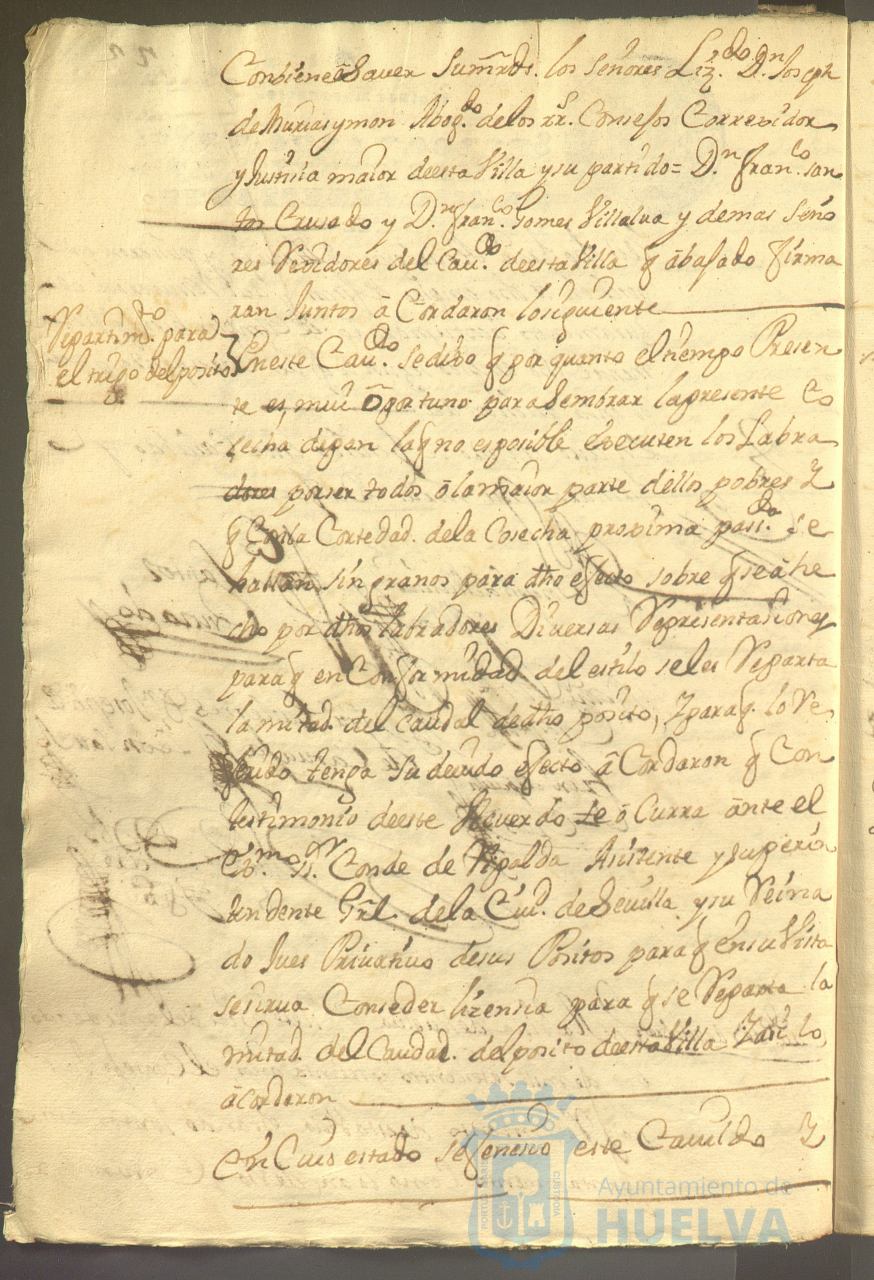 Conviene a Saver Sumrds. los señores Liz.do D.n Joseph
de Murias y mon Abog.do de los rr.s Consejos Correxidor
y Justicia maior de esta Villa y su partido = D.n Fran.co san
tos Crusado y D.n Fran.co Gomes Villalva y demas seño
res Rexidores del Cav.do de esta Villa q abajado firma
ran Juntos â Cordaron lo siguiente
Repartim.to para
el trigo del posito
En este Cav.do se dixo q por quanto el tiempo Presen
te es, mui Oportuno para Sembrar la presente Co
secha digan la q no es posible executen los Labra
dores por ser todos ô la maior parte dellos pobres Y
q Con la Cortedad. de la Cosecha proxima pasa.da se
hallan sin granos para dho efecto sobre q se â he
cho por dhos labradores Diversas Representasiones
para q en Conformidad del estilo se les Reparta
la mitad. del Caudal de dho posito, Y para q. lo Re
ferido tenga su devido efecto â Cordaron q Con
testimonio de este Acuerdo se ô Curra ânte el
Ex.mo s.r Conde de Ripalda Asistente y superin
tendente Grl. de la Ciud. de Sevilla y su Reina
do Jues Privativo de sus Positos para q en su Vista
se sirva Conseder lizensia para q se Reparta la
mitad. del Caudad. del posito de esta Villa Y asi lo
âcordaron
Con Cuio estado se fenesio este Cavildo Y
Ayuntamiento de
HUELVA